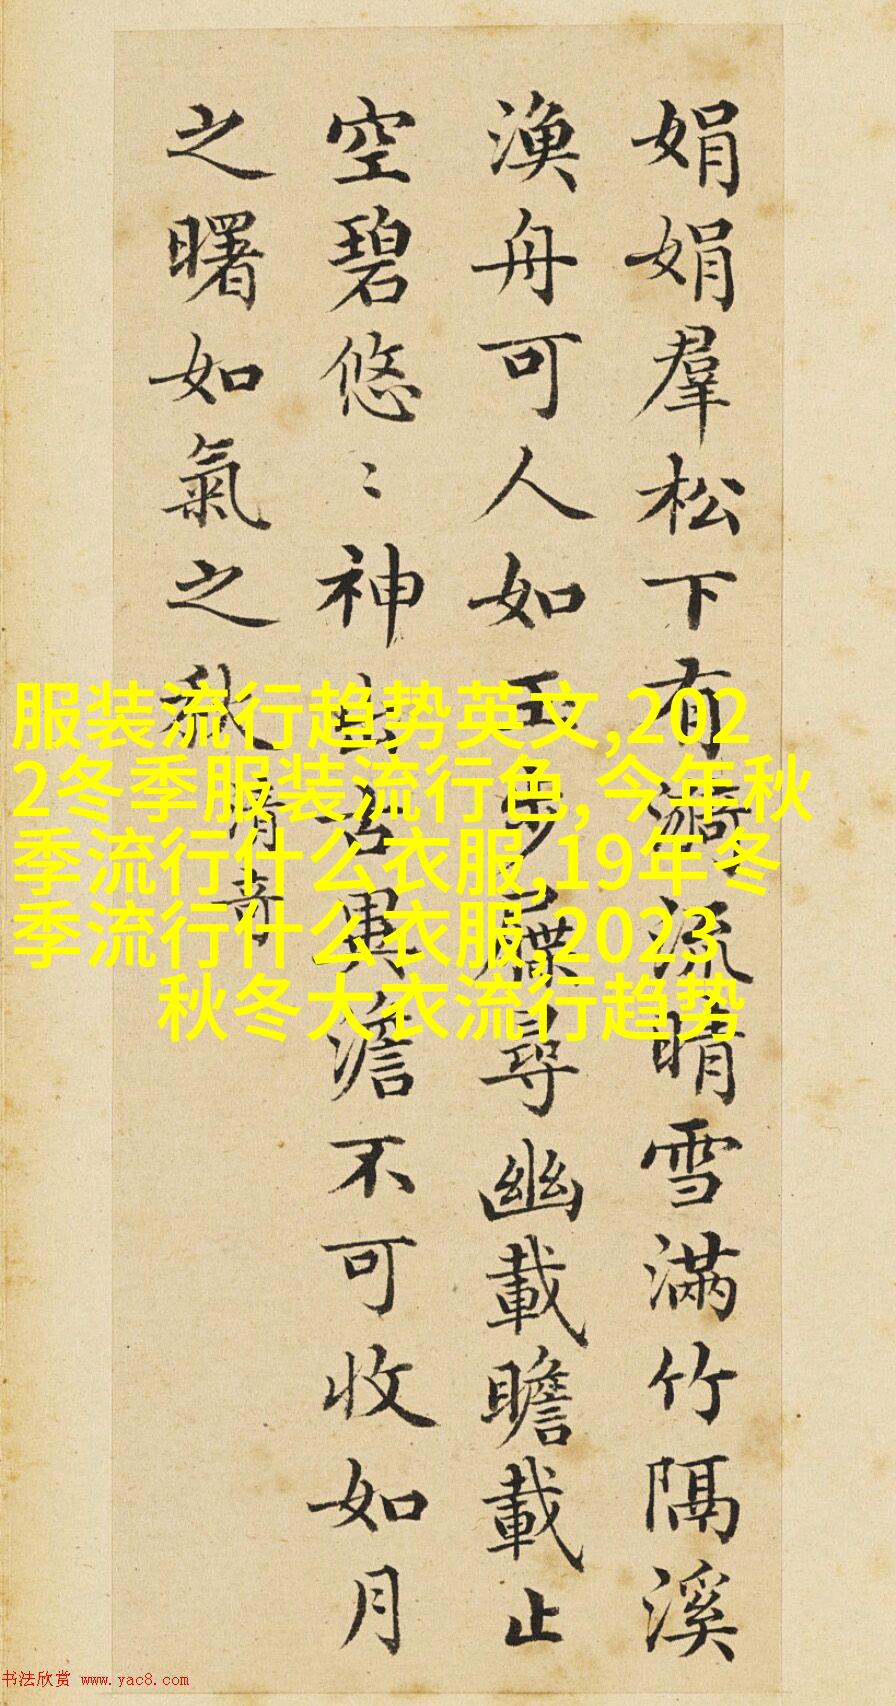 娟娟羣松下有漪流晴雪滿竹隔溪
漁舟可人如玉步屧尋幽載瞻載止
空碧悠〻神出古異澹不可收如月
之曙如氣之秋
清奇
服装流行趋势英文,202
2冬季服装流行色,今年秋
季流行什么衣服,19年冬
季流行什么衣服,2023
秋冬大衣流行趋势
书法欣赏 www.yac8.com